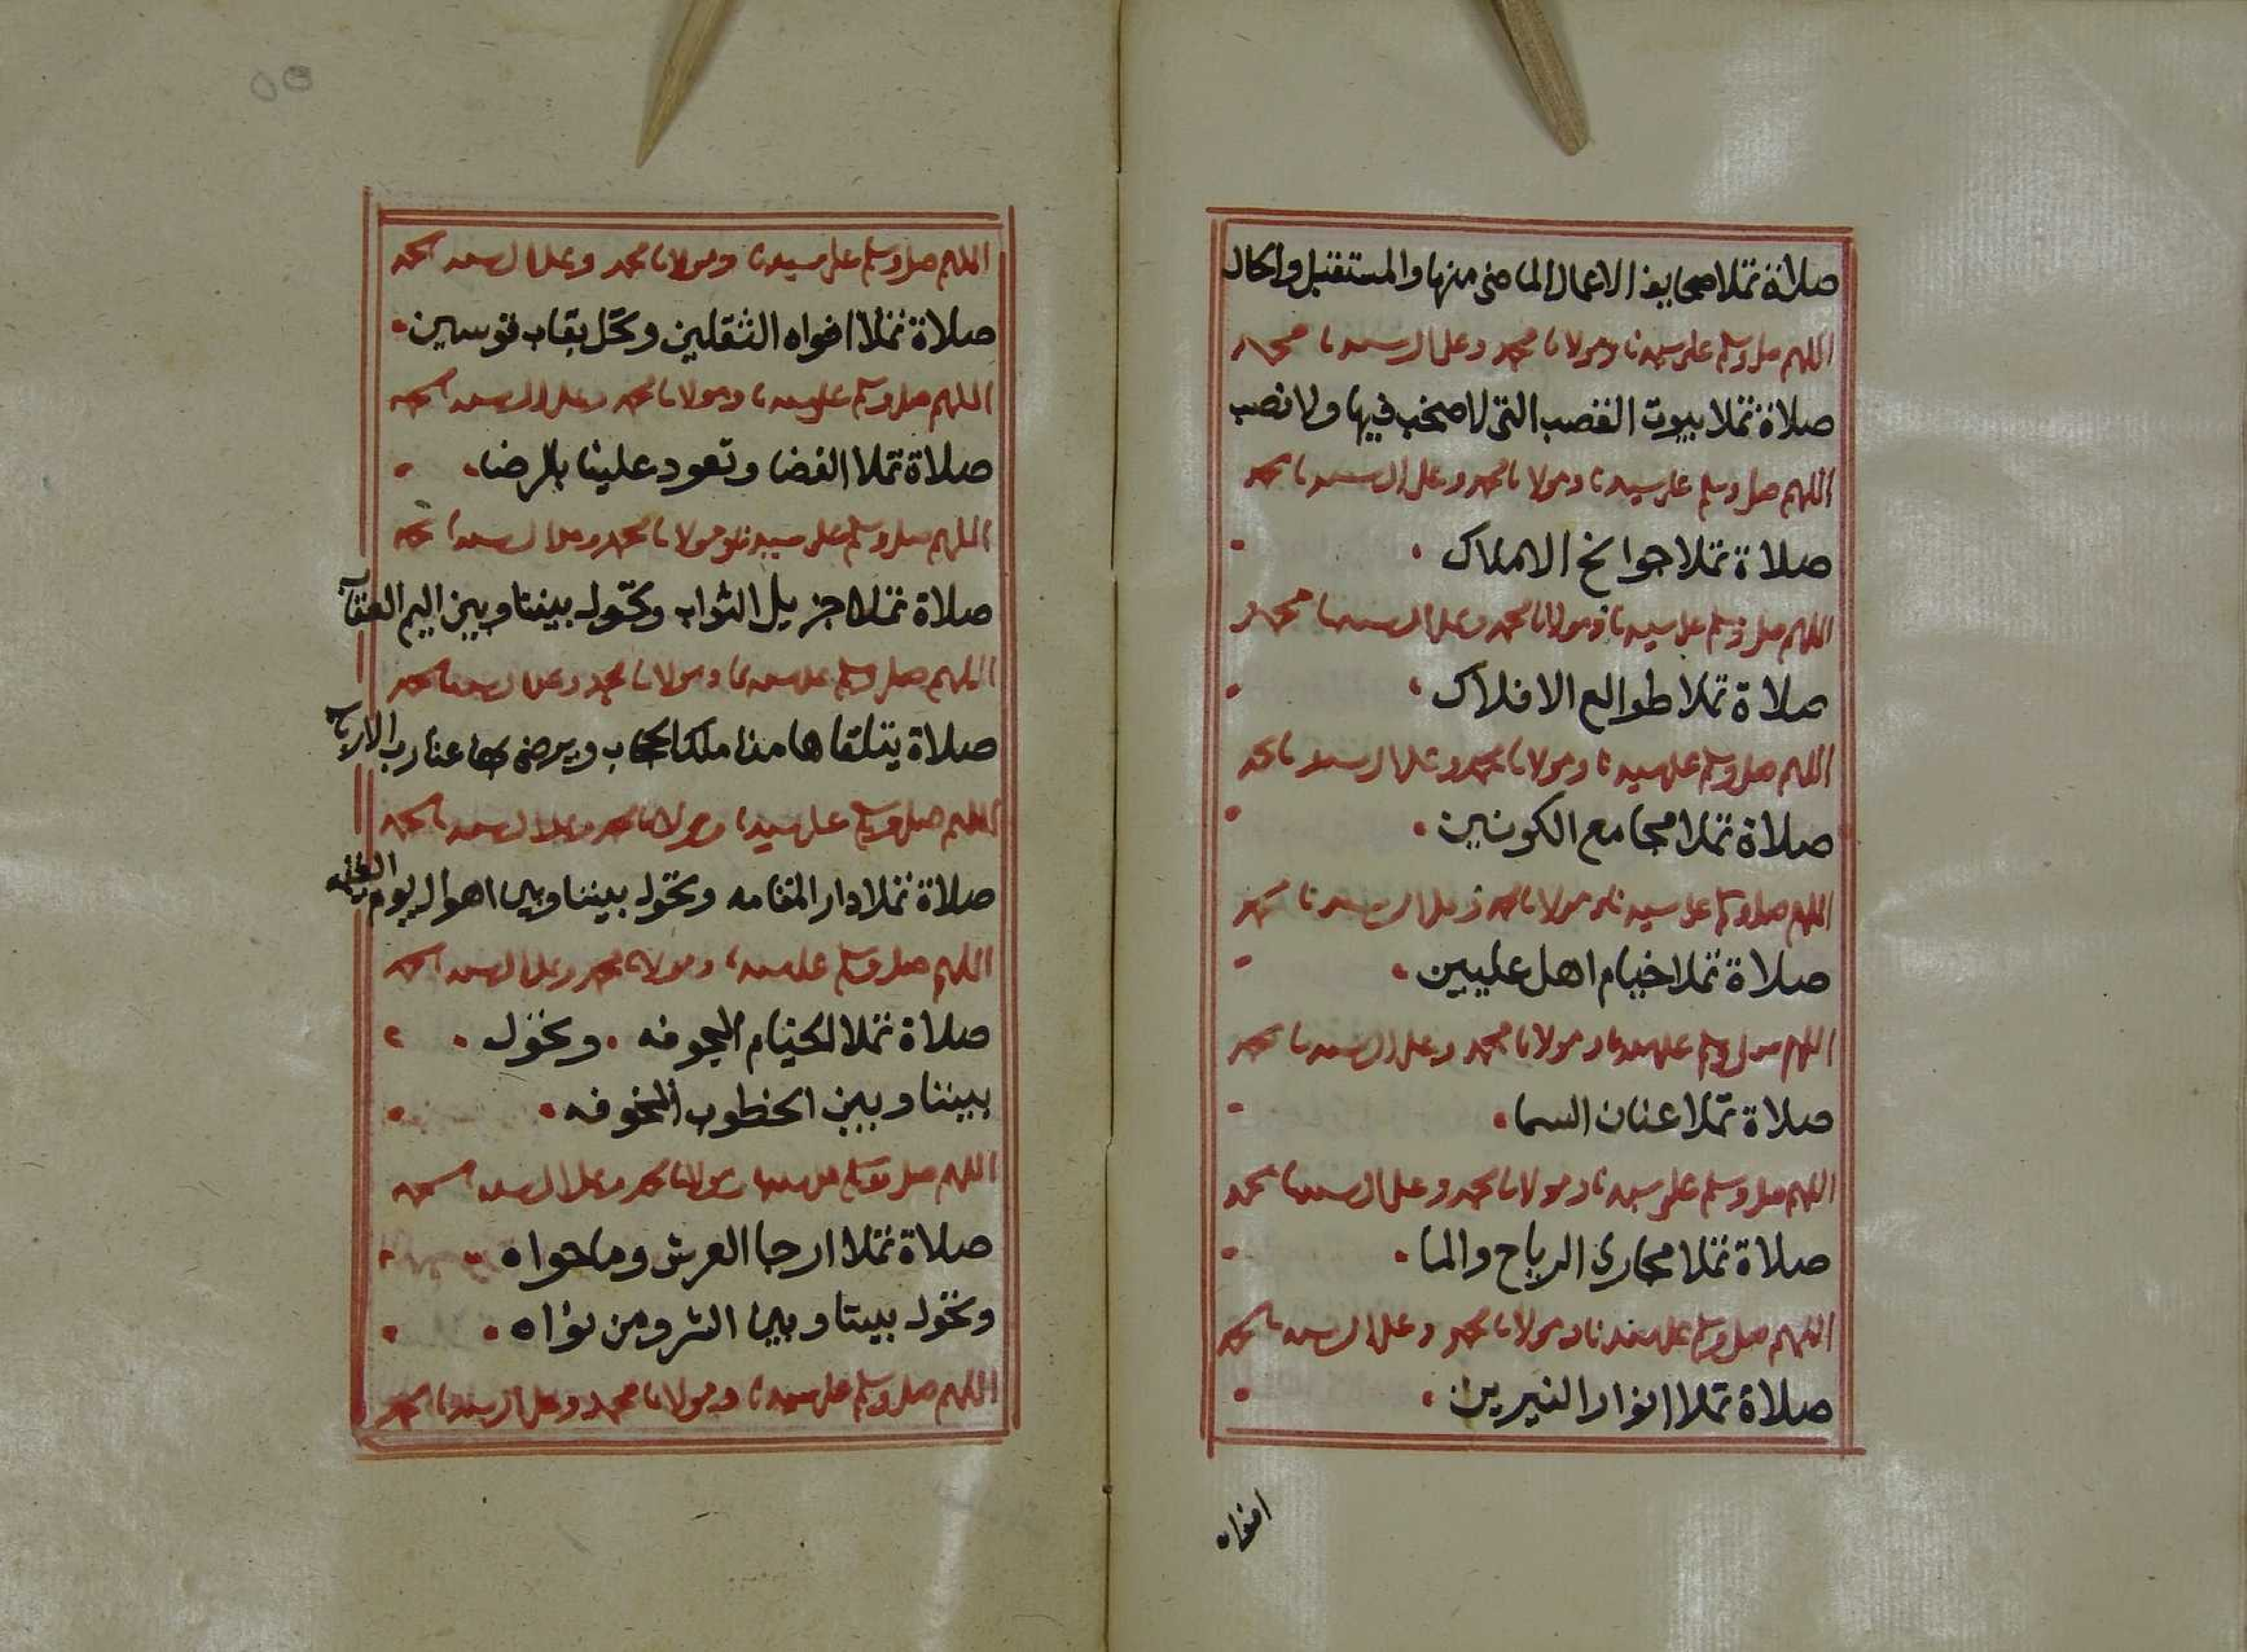 صلاة تملا صحايف الاعمال الماضى منها والمستقبل والحال
اللهم صل وسلم على سيدنا ومولانا محمد وعلى ال سيدنا محمد
صلاة تملا بيوت القصب التى لا صخب فيها ولا نصب
اللهم صل وسلم على سيدنا ومولانا محمد وعلى ال سيدنا محمد
صلاة تملا جوانح الاملاك
اللهم صل وسلم على سيدنا ومولانا محمد وعلى ال سيدنا محمد
صلاة تملا طوالع الافلاك
اللهم صل وسلم على سيدنا ومولانا محمد وعلى ال سيدنا محمد
صلاة تملا مجامع الكونين
اللهم صل وسلم على سيدنا ومولانا محمد وعلى ال سيدنا محمد
صلاة تملا خيام اهل عليين
اللهم صل وسلم على سيدنا ومولانا محمد وعلى ال سيدنا محمد
صلاة تملا عنان السما
اللهم صل وسلم على سيدنا ومولانا محمد وعلى ال سيدنا محمد
صلاة تملا مجارى الرياح والما
اللهم صل وسلم على سيدنا ومولانا محمد وعلى ال سيدنا محمد
صلاة تملا انوار النيرين
افواه
٥٥
اللهم صل وسلم على سيدنا ومولانا محمد وعلى ال سيدنا محمد
صلاة تملا افواه الثقلين وتحل بقاب قوسين
اللهم صل وسلم على سيدنا ومولانا محمد وعلى ال سيدنا محمد
صلاة تملا الفضا وتعود علينا بالرضا
اللهم صل وسلم على سيدنا ومولانا محمد وعلى ال سيدنا محمد
صلاة تملا جزيل الثواب وتحول بيننا وبين اليم العقاب
اللهم صل وسلم على سيدنا ومولانا محمد وعلى ال سيدنا محمد
صلاة يتلقاها منا ملك الحجاب ويرضى بها عنا رب الارباب
اللهم صل وسلم على سيدنا ومولانا محمد وعلى ال سيدنا محمد
صلاة تملا دار المقامه وتحول بيننا وبين اهوال يوم القيامه
اللهم صل وسلم على سيدنا ومولانا محمد وعلى ال سيدنا محمد
صلاة تملا الخيام المجوفه وتحول
بيننا وبين الخطوب المخوفه
اللهم صل وسلم على سيدنا ومولانا محمد وعلى ال سيدنا محمد
صلاة تملا ارجا العرش وما حواه
وتحول بيننا وبين الشر ومن نواه
اللهم صل وسلم على سيدنا ومولانا محمد وعلى ال سيدنا محمد